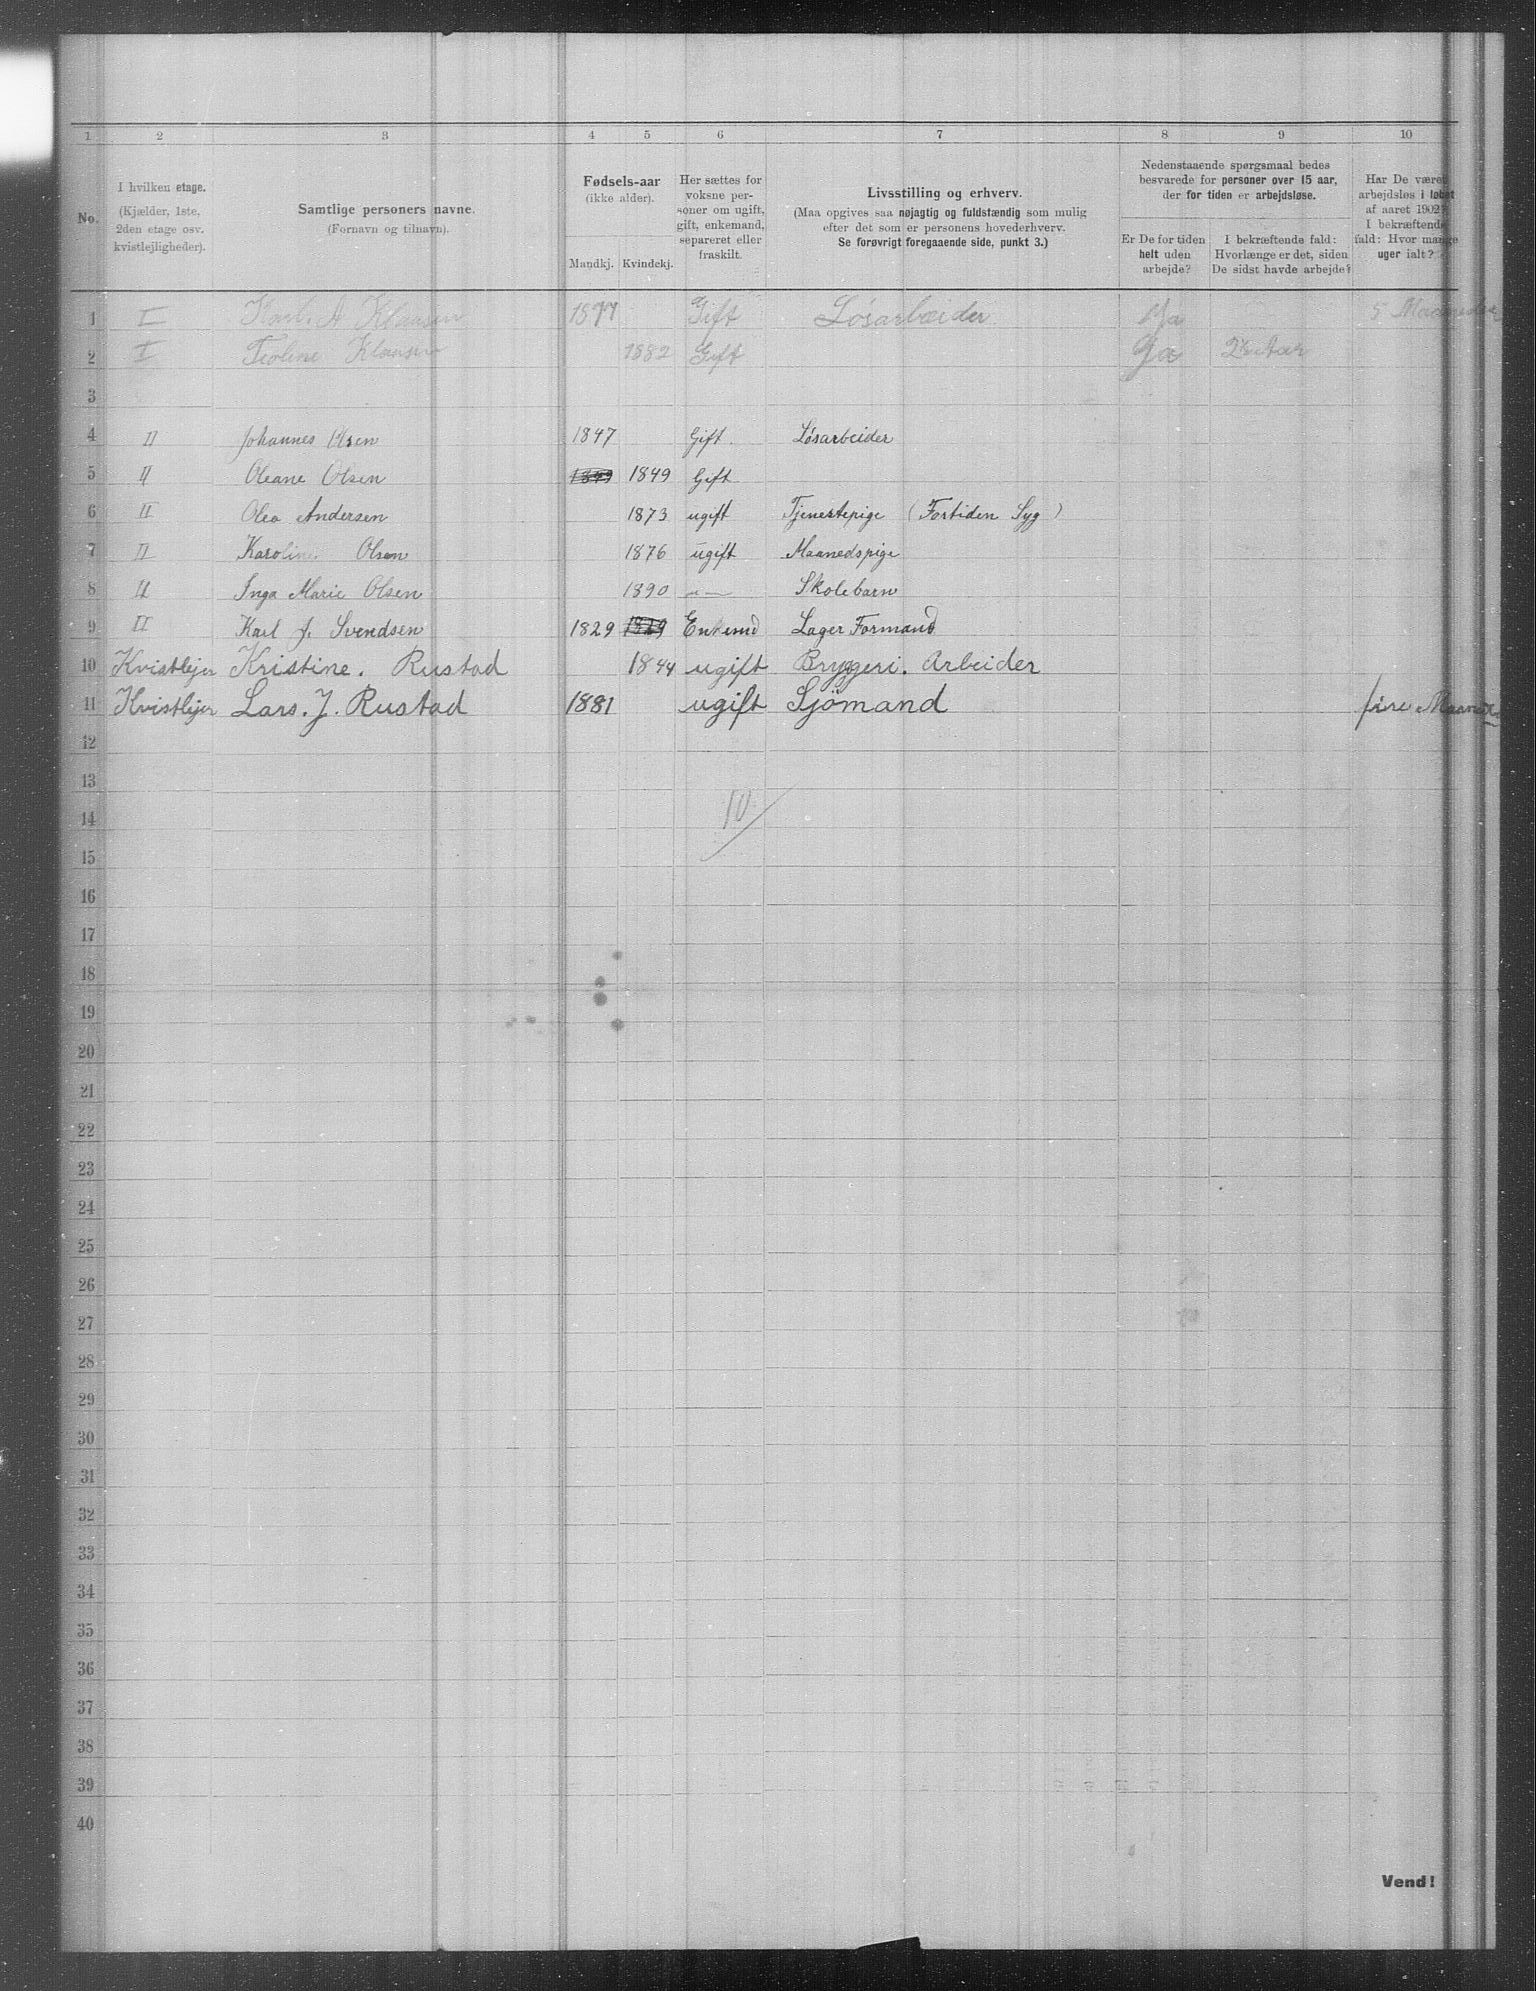 1 2 3 4 5 6 7 8 9 10
No.
I hvilken etage.
(Kjælder, 1ste,
2den etage osv.
kvistlejligheder).
Samtlige personers navne.
(Fornavn og tilnavn).
Fødsels-aar
(ikke alder).
Mandkj. Kvindekj.
Her sættes for
voksne per-
soner om ugift,
gift, enkemand,
separeret eller
fraskilt.
Livsstilling og erhverv.
(Maa opgives saa nøjagtig og fuldstændig som mulig
efter det som er personens hovederhverv.
Se forøvrigt foregaaende side, punkt 3.)
Nedenstaaende spørgsmaal bedes
besvarede for personer over 15 aar,
der for tiden er arbejdsløse.
Er De for tiden
helt uden
arbejde?
I bekræftende fald:
Hvorlænge er det, siden
De sidst havde arbejde?
Har De været
arbejdsløs i løbet
af aaret 1902?
I bekræftende
fald: Hvor mange
uger ialt?
1 I Karl. A Klausen 1877 Gift Løsarbeider Ja 5 Maaneder
2 I Teoline Klausen 1882 Gift Ja Aar
3
4 II Johannes Olsen 1847 Gift. Løsarbeider
5 II Oleane Olsen 1849 1849 Gift
6 II Olea Andersen 1873 ugift Tjenestepige (Fortiden Syg)
7 II Karoline Olsen 1876 ugift Maanedspige
8 II Inga Marie Olsen 1890 —"— Skolebarn
9 II Karl J. Svendsen 1829 1829 Enkemd Lager Formand
10 Kvistlejer Kristine. Rustad 1844 ugift Bryggeri. Arbeider
11 Kvistlejer Lars. J. Rustad 1881 ugift Sjømand fire Maaned
12
13
10
14
15
16
17
18
19
20
21
22
23
24
25
26
27
28
29
30
31
32
33
34
35
36
37
38
39
40
Vend!